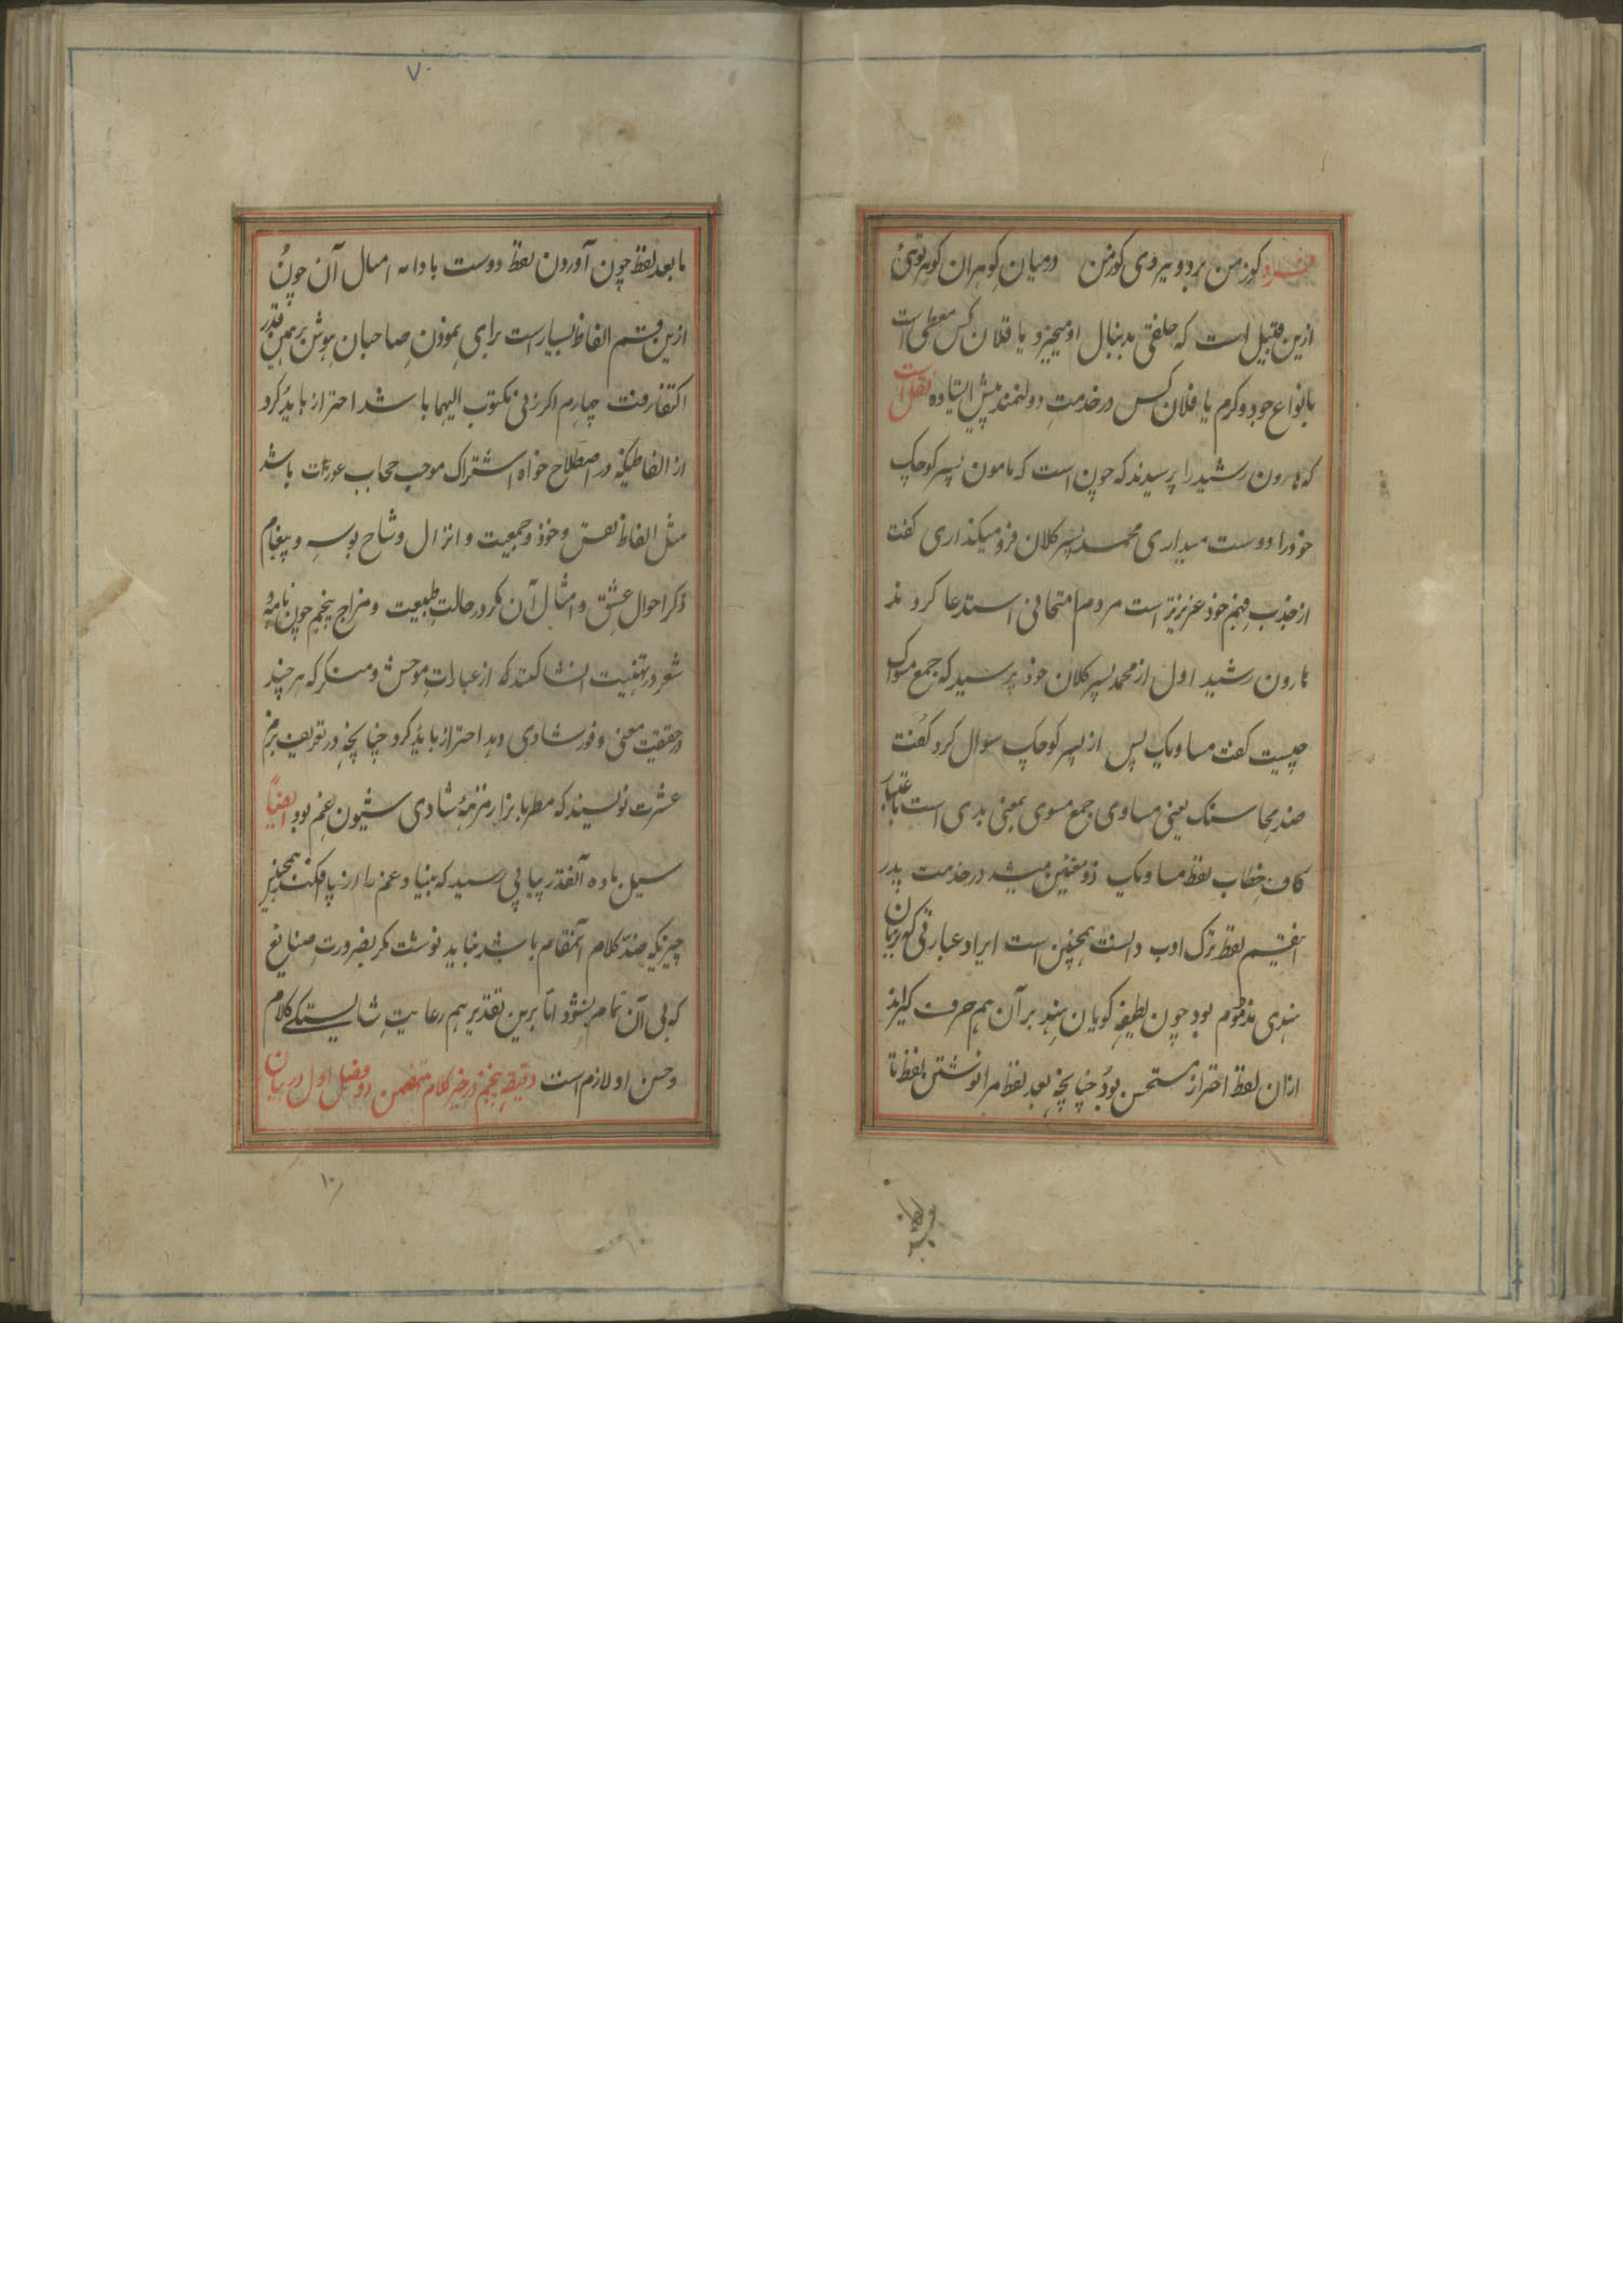 فرد کوز من برد و نیروی کوز من درمیان کوهران کوهر توئی
ازین قبیل است که خلقی بدنبال او میخیزد یا فلان کس معطی است
بانواع جود و کرم یا فلان کس در خدمتِ دولتمند پیش ایستاده نقل است
که هارون رشید را پرسیدند که چون است که مامون پسر کوچک
خود را دوست میداری محمد پسر کلان فرو میکذاری کفت
از جذب فهم خود عزیزتر است مردم امتحانی استدعا کردند
هارون رشید اول از محمد پسر کلان خود پرسید که جمع مسواک
چیست کفت مساویک پس از پسر کوچک سوال کرد کفت
ضد محاسنک یعنی مساوی جمع مسوی بمعنی بدی است باعتبار
کاف خطاب لفظ مساویک ذو معنین میشد در خدمت پدر
اینقسم لفظ ترک ادب دانست همچنین است ایراد عبارتی که بزبان
هندی مذموم بود چون لطیفه کویان هند بر آن هم حرف کیرند
ازان لفظ احتراز مستحسن بود چنانچه بعد لفظ مرا نوشتن لفظ تا
۷۰
ما بعد لفظ چون آوردن لفظ دوست یا دانه امثال آن چون
ازین قسم الفاظ بسیار است برای نمودنِ صاحبان هوش برهمین قدر
اکتفا رفت چهارم اکر زنی مکتوب الیهما باشد احتراز باید کرد
از الفاظیکه در اصطلاح خواه اشتراک موجب حجاب عورات باشد
مثل الفاظ نفس و خود و جمعیت و انزال و شاخ بوسه و پیغام
ذکر احوال عشق و امثال آن مکر در حالتِ طبیعت و مزاج پنجم چون نامه و
شعر در تهنیت انشا کنند که از عبارات موحش و منکر که هر چند
در حقیقت معنی وفور شادی دهد احتراز باید کرد چنانچه در تعریف بزم
عشرت نویسند که مطربا بزار مزمهٔ شادی شیون غم بود ایضاً
سیل باده آنقدر پیاپی رسید که بنیاد غم را از پا فکند همچنین
چیزیکه ضد کلام آنمقام باشد نباید نوشت مکر بضرورتِ صنایع
که بی آن تمام نشود اما برین تقدیر هم رعایتِ شایستکی کلام
و حسن او لازم است دقیقهٔ پنجم در خیر کلام متضمن دو فصل اول در بیان
۱۰